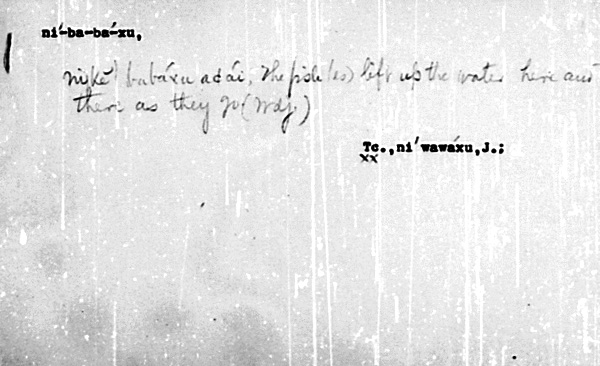 ní-ba-ba-xu,
babáxu adái, The fish(es) lift up the water here and
there as they go (Wdj.)
Tc.,ni´wawáxu,J.;
xx